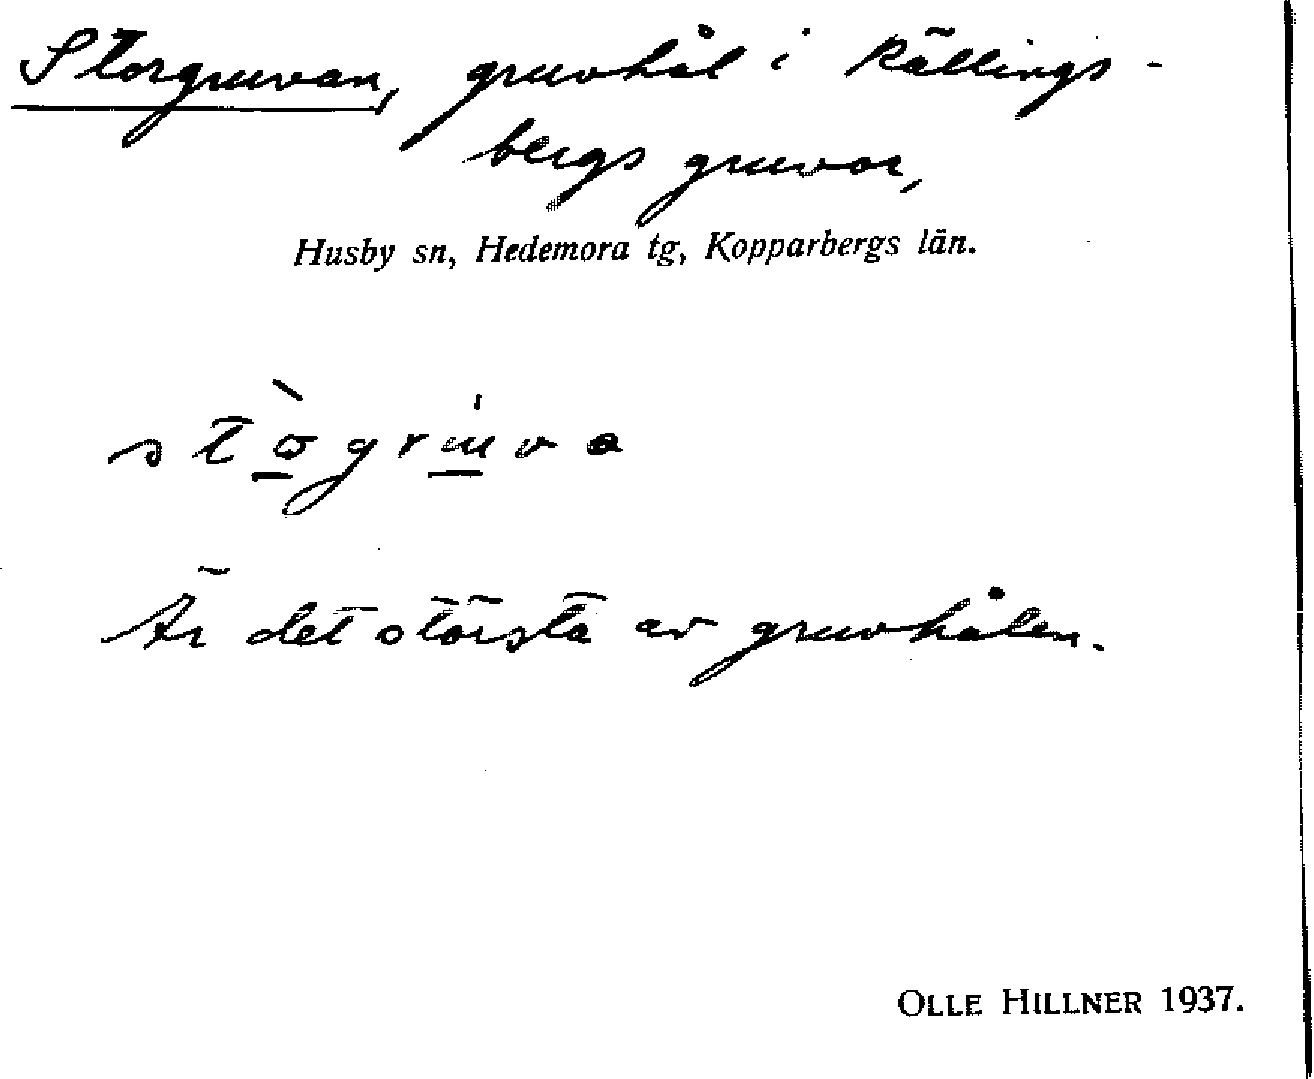 Storgruvan, gruvhål i Källings-
bergs gruvor,
Husby sn, Hedemora tg, Kopparbergs län.
stò̠gru̠va
Är det största av gruvhålen.
OLLE HILLNER 1937.